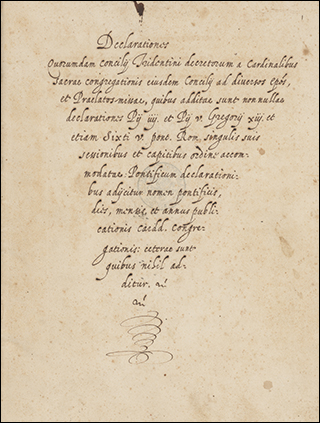 Declarationes
Quorumdam Concilij Tridentini decretorum a Cardinalibus
sacrae congregationis eiusdem Concilij ad diversos Epos,
et Praelatos missae, quibus additae sunt non nullae
declarationes Pij iiij. et Pij v. Gregorij xiij. et
etiam Sixti v. pont. Rom. singulis suis
sessionibus et capitibus ordine accom-
modatae. Pontificum declarationi-
bus adijcitur nomen pontificis,
dies, mensis, et annus publi-
cationis eardd. Congre-
gationis: ceterae sunt
quibus nihil ad-
ditur.